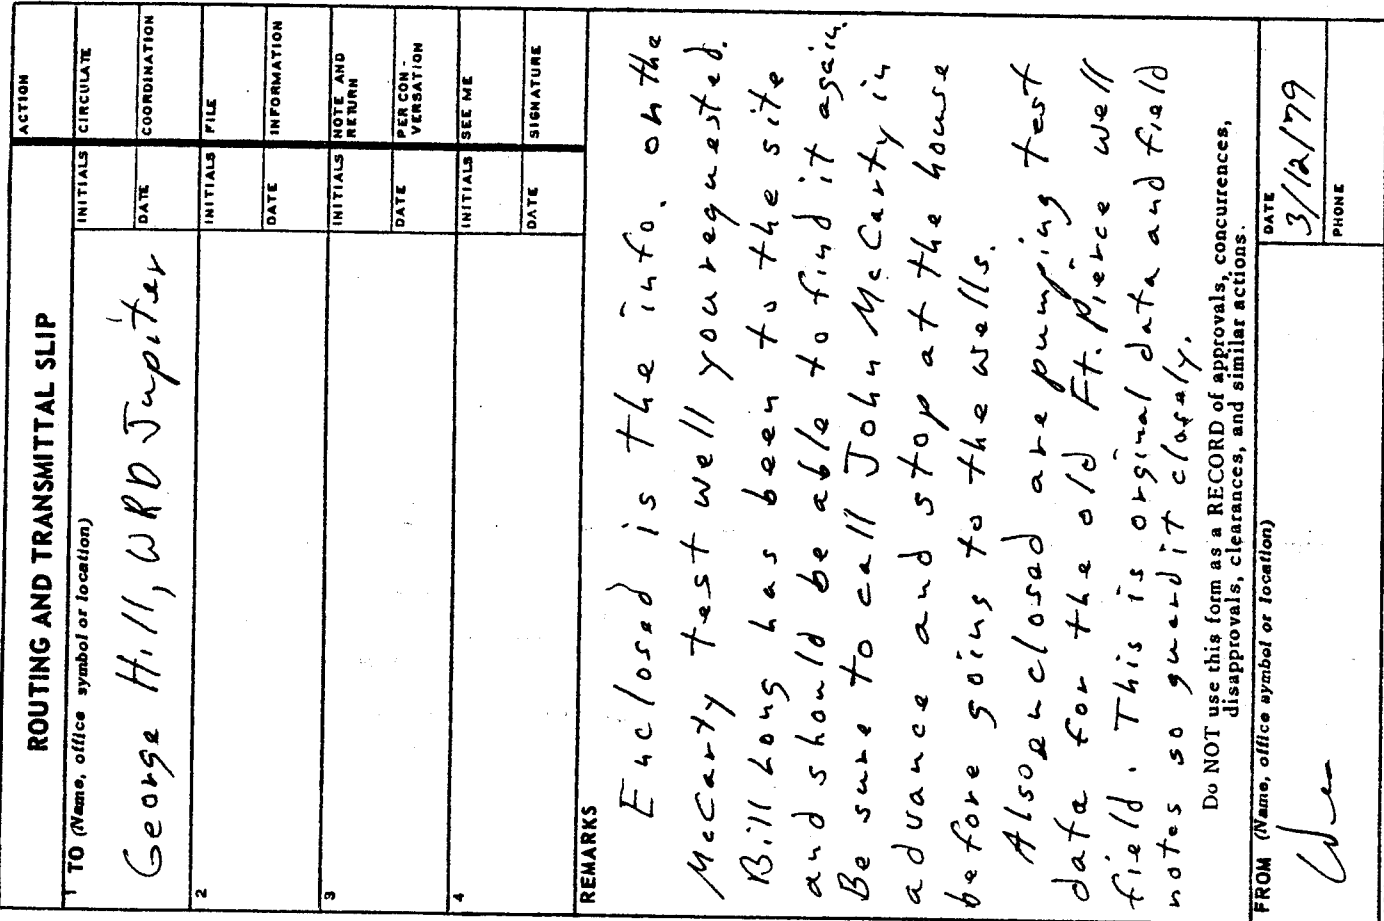 ROUTING AND TRANSMITTAL SLIP
ACTION
1 TO (Name, office symbol or location)
George Hill, WRD Jupiter
INITIALS
CIRCULATE
DATE
COORDINATION
2
INITIALS
FILE
DATE
INFORMATION
3
INITIALS
NOTE AND
RETURN
DATE
PER CON-
VERSATION
4
INITIALS
SEE ME
DATE
SIGNATURE
REMARKS
Enclosed is the info. on the
McCarty test well you requested.
Bill Long has been to the site
and should be able to find it again.
Be sure to call John McCarty in
advance and stop at the house
before going to the wells.
Also enclosed are pumping test
data for the old Ft. Pierce well
field. This is orginal data and field
notes so guard it closely.
Do NOT use this form as a RECORD of approvals, concurrences,
disapprovals, clearances, and similar actions.
FROM (Name, office symbol or location)
DATE
3/12/79
PHONE